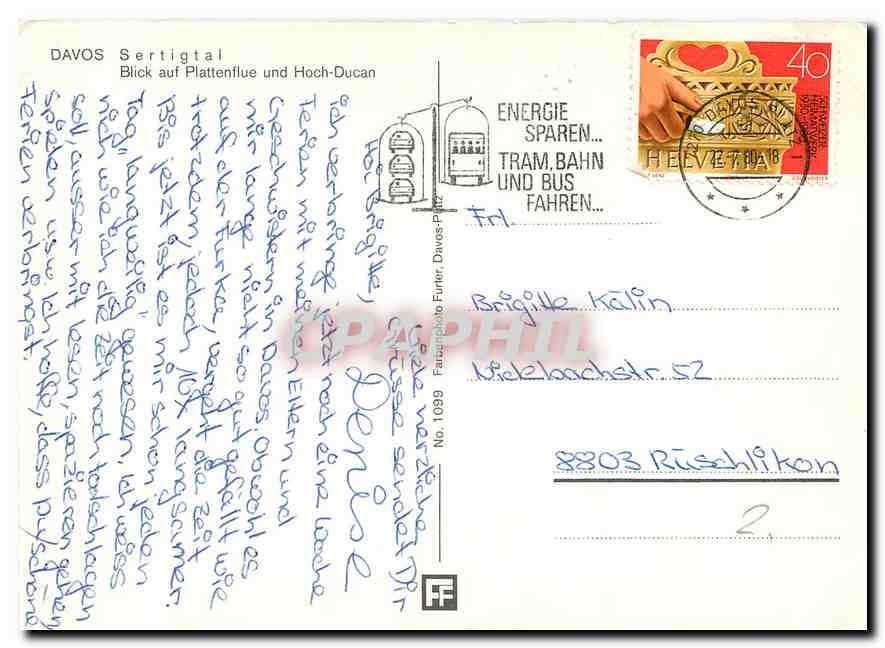 DAVOS Sertigtal
Blick auf Plattenflue und Hoch-Ducan
ENERGIE
SPAREN...
TRAM, BAHN
UND BUS
FAHREN...
40
HELVETIA
DAVOS PLATZ 1
80
18
Frl.
Brigitte Kälin
Nidelbachstr. 52
8803 Rüschlikon
2.
No. 1099 Farbenphoto Furter, Davos-Platz
FF
CPAPHIL
Hoi Brigitte,
ich verbringe jetzt noch eine Woche
Ferien mit meinen Eltern und
Geschwistern in Davos. Obwohl es
mir lange nicht so gut gefällt wie
auf der Furka, vergeht die Zeit
trotzdem, jedoch 10x langsamer.
Bis jetzt ist es mir schon jeden
Tag "langweilig" gewesen. Ich weiss
nicht, wie ich die Zeit noch totschlagen
soll, ausser mit lesen, spazieren gehen,
spielen usw. Ich hoffe, dass Du schöne
Ferien verbringst.
Viele herzliche
Grüsse sendet Dir
Denise